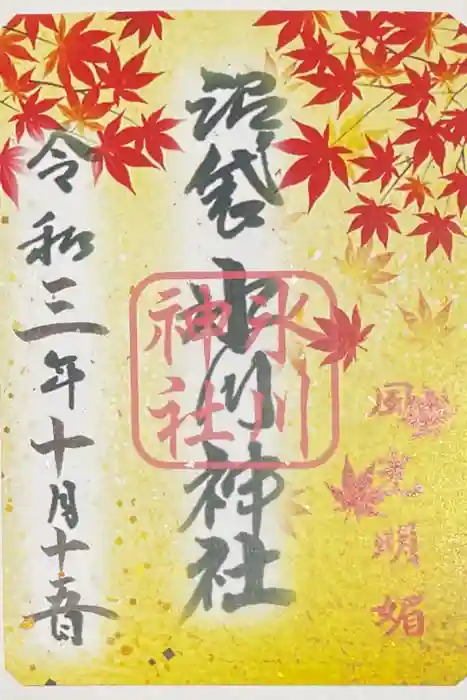 風光明媚
沼袋氷川神社
氷川
神社
令和三年十月十五日